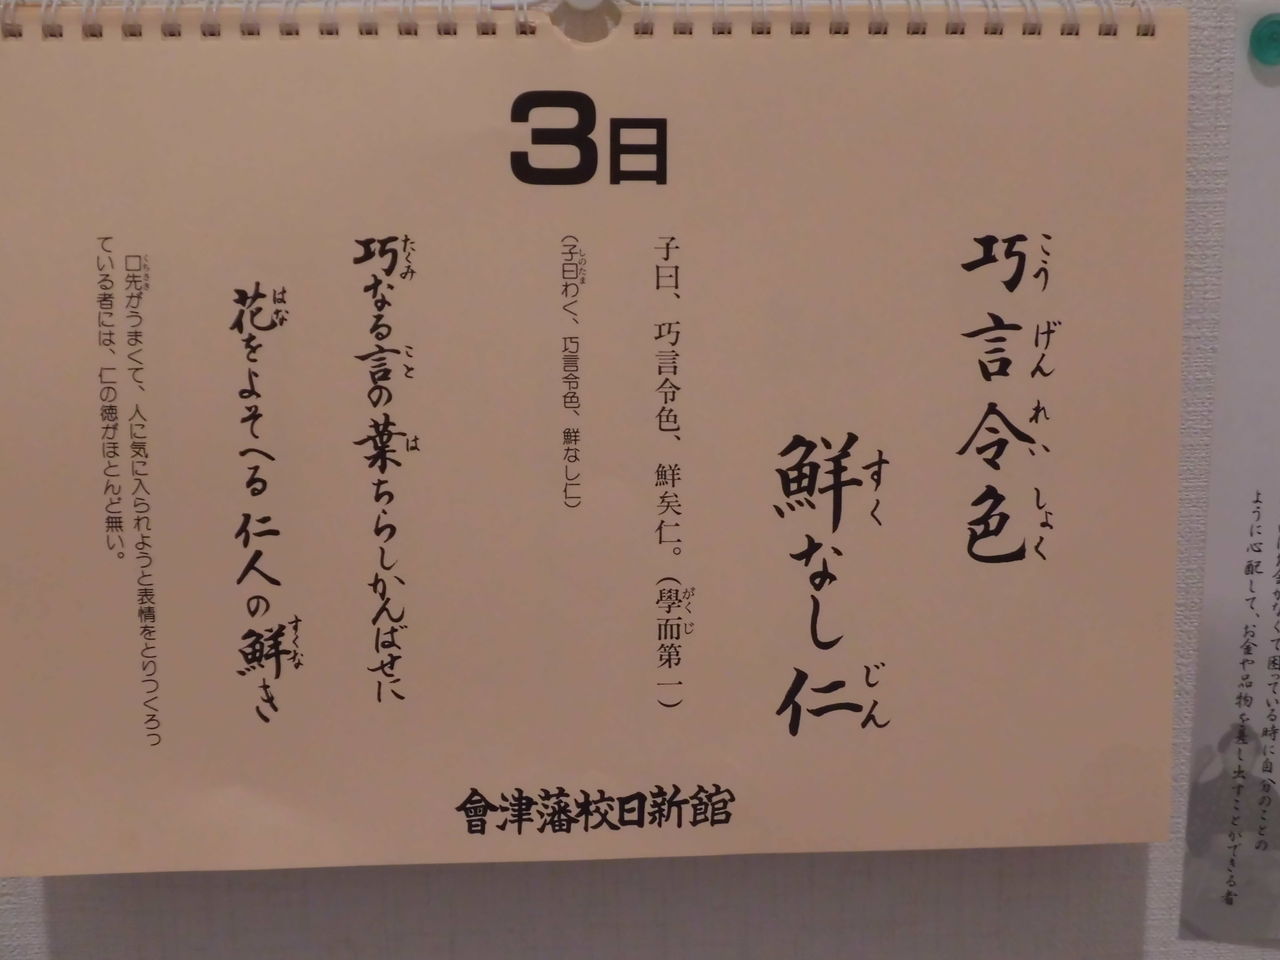 3日
巧言令色
こうげんれいしょく
鮮なし仁
すくじん
子曰、巧言令色、鮮矣仁。(學而第一)
がくじ
(子曰わく、巧言令色、鮮なし仁)
しのたま
巧なる言の葉ちらしかんばせに
たくみことは
花をよそへる仁人の鮮き
はなすくな
口先がうまくて、人に気に入られようと表情をとりつくろっ
くちさき
ている者には、仁の徳がほとんど無い。
會津藩校日新館
困っている時に自分のことの
ように心配して、お金や品物を差し出すことができる者